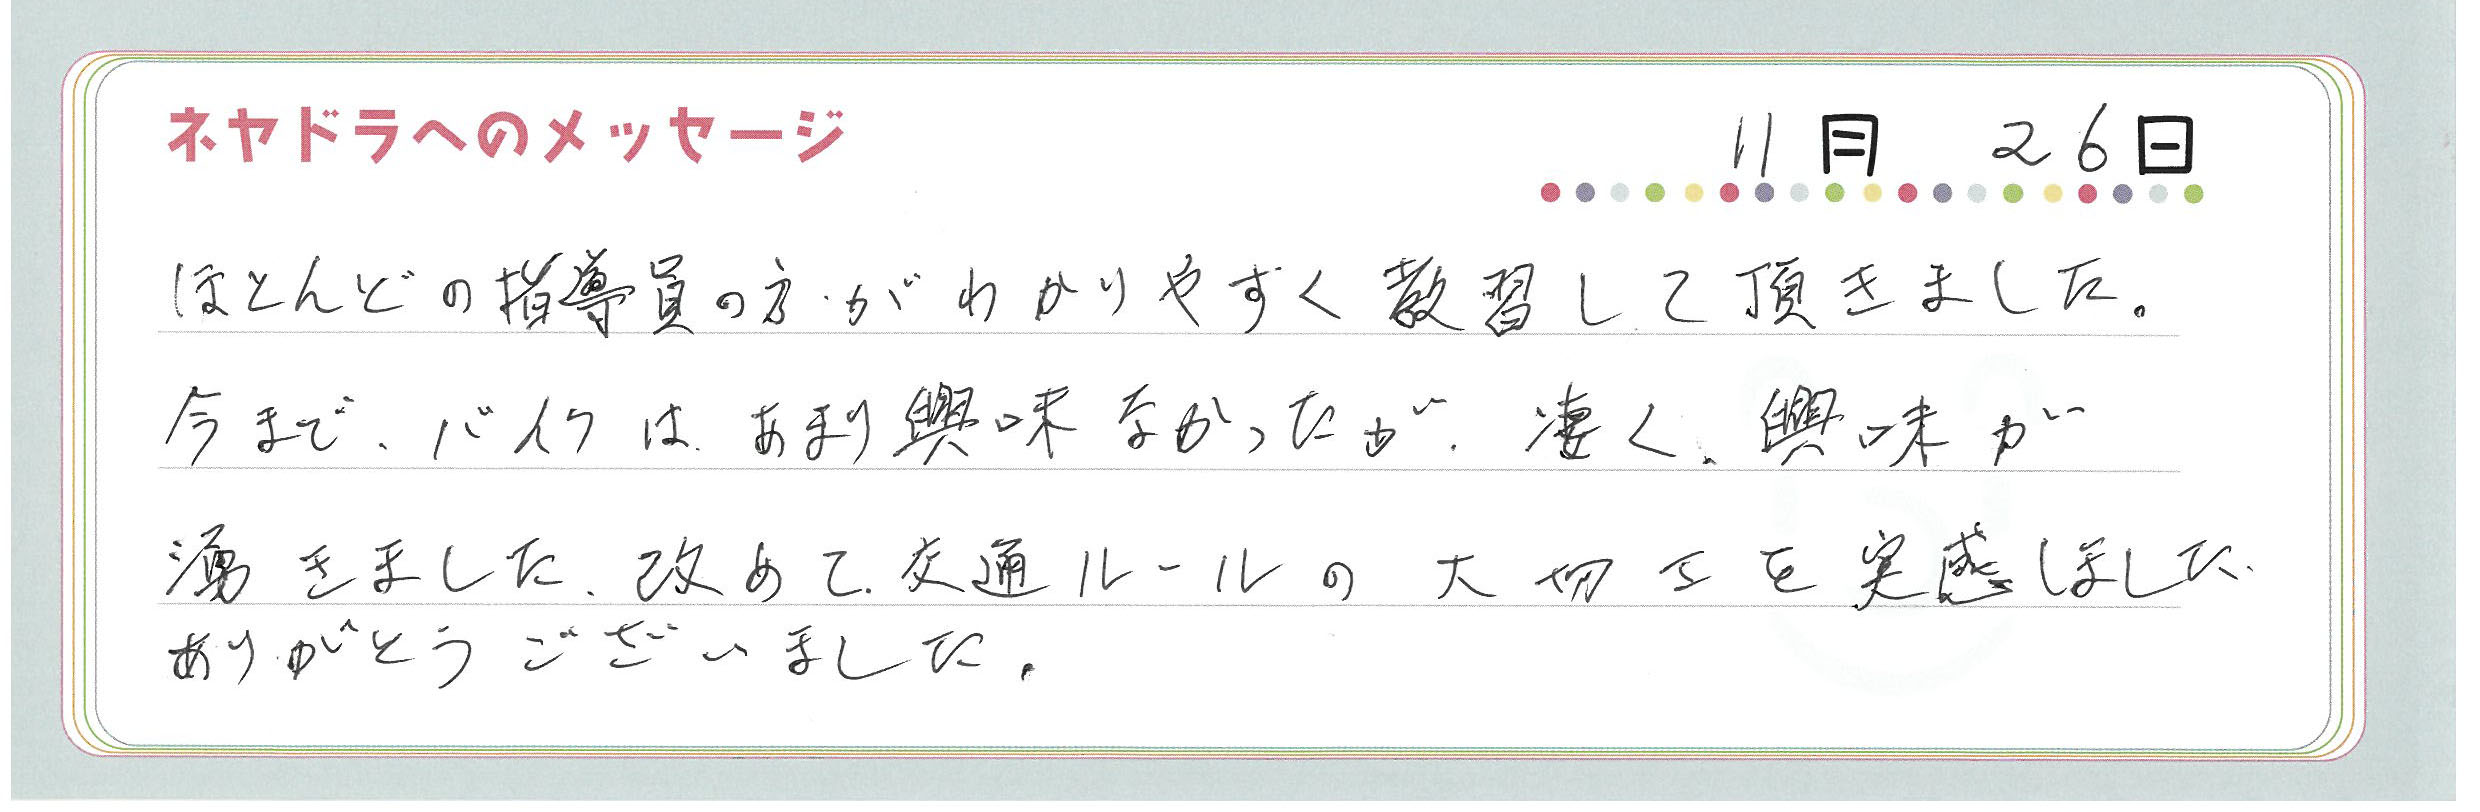 ネヤドラへのメッセージ
11月 26日
ほとんどの指導員の方がわかりやすく教習して頂きました。
今まで、バイクは、あまり興味なかったが、凄く、興味が
湧きました、改めて、交通ルールの大切さを実感しました、
ありがとうございました。